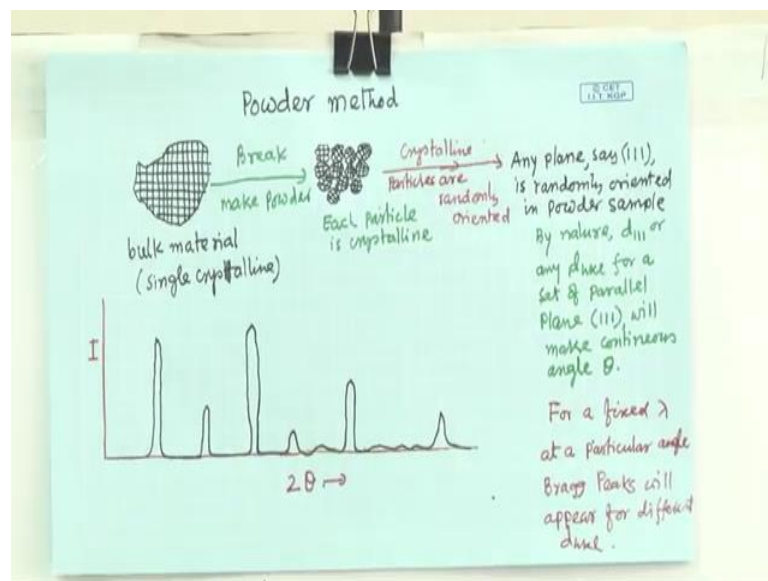 Powder method
© CET
I.I.T. KGP
Break
make Powder
bulk material
(single crystalline)
Each Particle
is crystalline
Crystalline
Particles are
randomly
oriented
Any plane, say (111),
is randomly oriented
in powder sample
By nature, d111 or
any dhkl for a
set of parallel
Plane (111) will
make continuous
angle θ.
For a fixed λ
at a particular angle
Bragg Peaks will
appear for different
dhkl.
I
2θ →